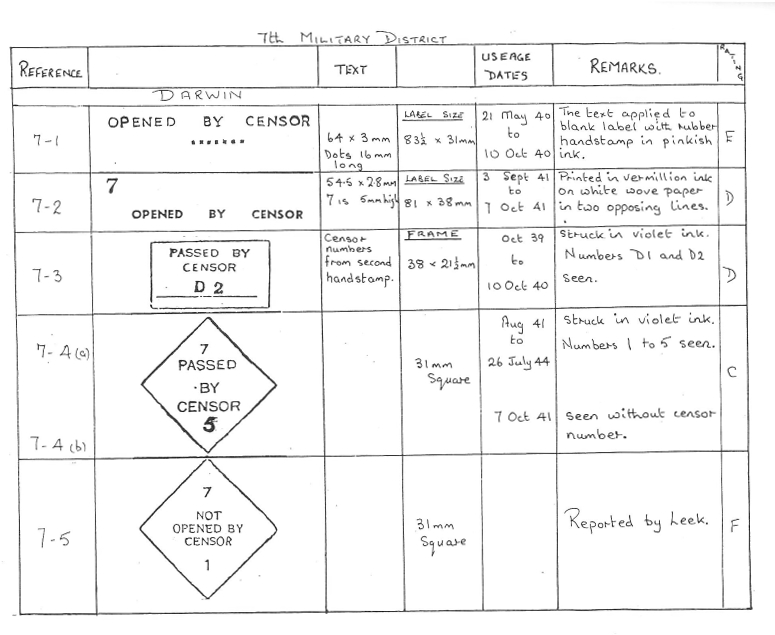 7th MILITARY DISTRICT
REFERENCE
TEXT
USEAGE
DATES
REMARKS.
RATING
DARWIN
7-1
OPENED BY CENSOR
.......
64 x 3mm
Dots 16mm
long
LABEL SIZE
83½ x 31mm
21 May 40
to
10 Oct 40
The text applied to
blank label with rubber
handstamp in pinkish
ink.
E
7-2
7
OPENED BY CENSOR
54.5 x 28mm
7 is 5mm high
LABEL SIZE
81 x 38mm
3 Sept 41
to
7 Oct 41
Printed in vermillion ink
on white wove paper
in two opposing lines.
D
7-3
PASSED BY
CENSOR
D 2
Censor
numbers
from second
handstamp.
FRAME
38 x 21½mm
Oct 39
to
10 Oct 40
Struck in violet ink.
Numbers D1 and D2
seen.
D
7-4(a)
7
PASSED
BY
CENSOR
5
31mm
Square
Aug 41
to
26 July 44
Struck in violet ink.
Numbers 1 to 5 seen.
C
7-4(b)
7 Oct 41
seen without censor
number.
7-5
7
NOT
OPENED BY
CENSOR
1
31mm
Square
Reported by Leek.
F